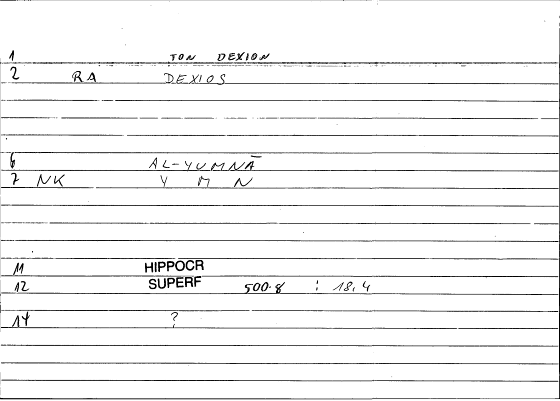 1 TON DEXION
2 RA DEXIOS
6 AL-YUMNĀ
7 NK Y M N
11 HIPPOCR
12 SUPERF 500.8 : 18,4
14 ?